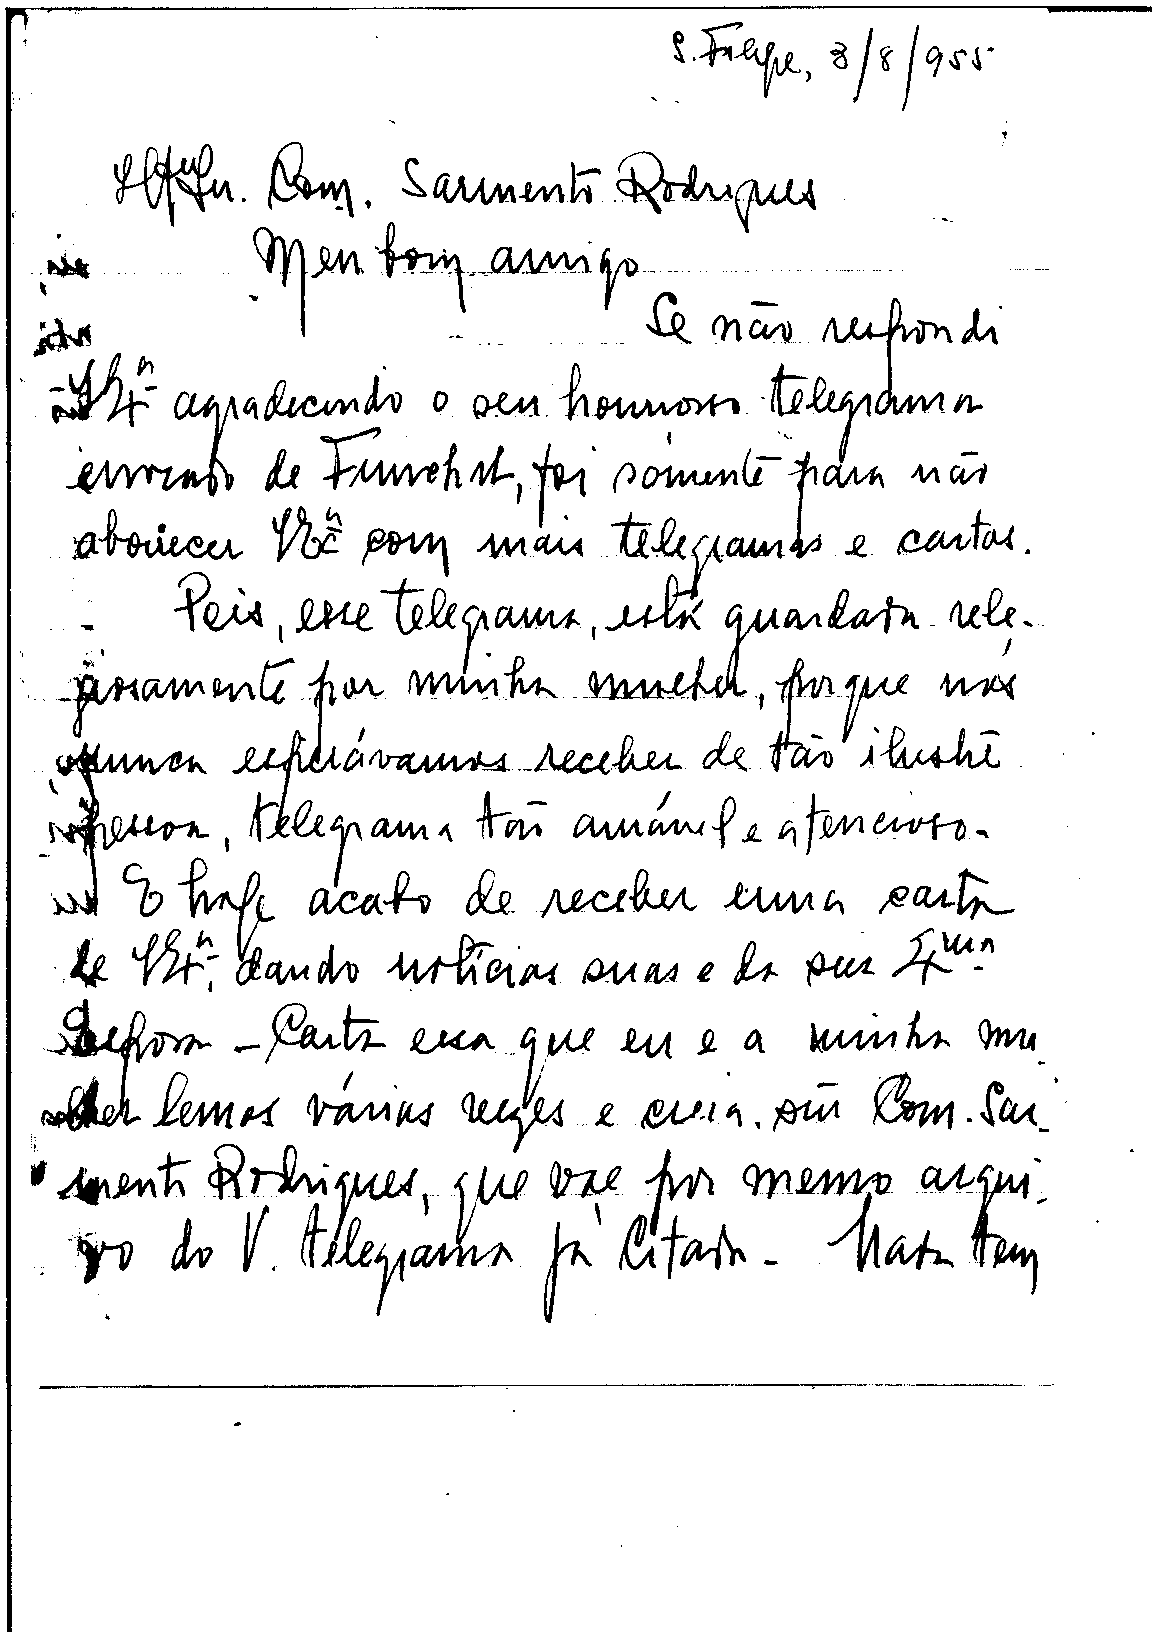 S. Filipe, 3/8/955
Sr. Com. Sarmento Rodrigues
Meu bom amigo
Se não respondi
V Exª agradecendo o seu honroso telegrama
enviado de Funchal, foi sómente para não
aborrecer V Exª com mais telegramas e cartas.
Pois, esse telegrama, está guardada rele-
giosamente por minha mulher, porque nós
nunca esperávamos receber de tão ilustre
pessoa, telegrama tão amável e atencioso-
E hoje acabo de receber uma carta
de V Exª, dando notícias suas e da sua Exma
Senhora - Carta essa que eu e a minha mu
lher lemos várias vezes e creia. sr. Com. Sar-
mento Rodrigues, que vae por mesmo arqui-
vo do V. telegrama já citada - Nada tem